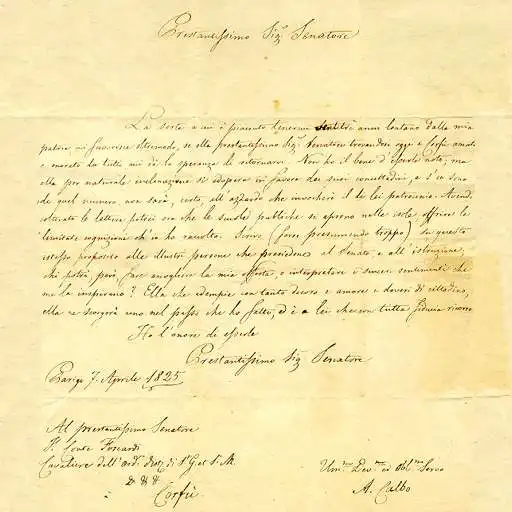 Prestantissimo Sig.r Senatore
La sorte a cui è piaciuto tenermi ventitrè anni lontano dalla mia
patria mi favorisce oltremodo, se ella prestantissimo Sig.r Senatore trovandosi oggi a Corfù amato
e onorato da tutti mi dà la speranza di ritornarvi. Non ho il bene d'esserle noto, ma
ella per naturale inclinazione si adopera in favore dei suoi concittadini, e s'io sono
di quel numero, non sarà, certo, all'azzardo che invocherò il di lei patrocinio. Avendo
coltivato le lettere potrei ora che le scuole pubbliche si aprono nelle isole, offrire le
limitate cognizioni ch'io ho raccolto. Scrivo (forse presumendo troppo) su questo
istesso proposito alle illustri persone che presiedono al Senato, e all'istruzione,
chi potrà però fare accogliere la mia offerta, e interpretare i sinceri sentimenti che
me la inspirano? Ella che adempie con tanto decoro e amore i doveri di cittadino,
ella ne scorgerà uno nel passo che ho fatto, ed è a lei che con tutta fiducia ricorro
Ho l'onore di esserle
Prestantissimo Sig.r Senatore
Parigi 7. Aprile 1825
Al prestantissimo Senatore
Il Conte Foscardi
Cavaliere dell'ord. dist. di S. G. et S. M.
&. &. &.
Corfù
Um.mo Dev.mo ed Obl.mo Servo
A. Calbo